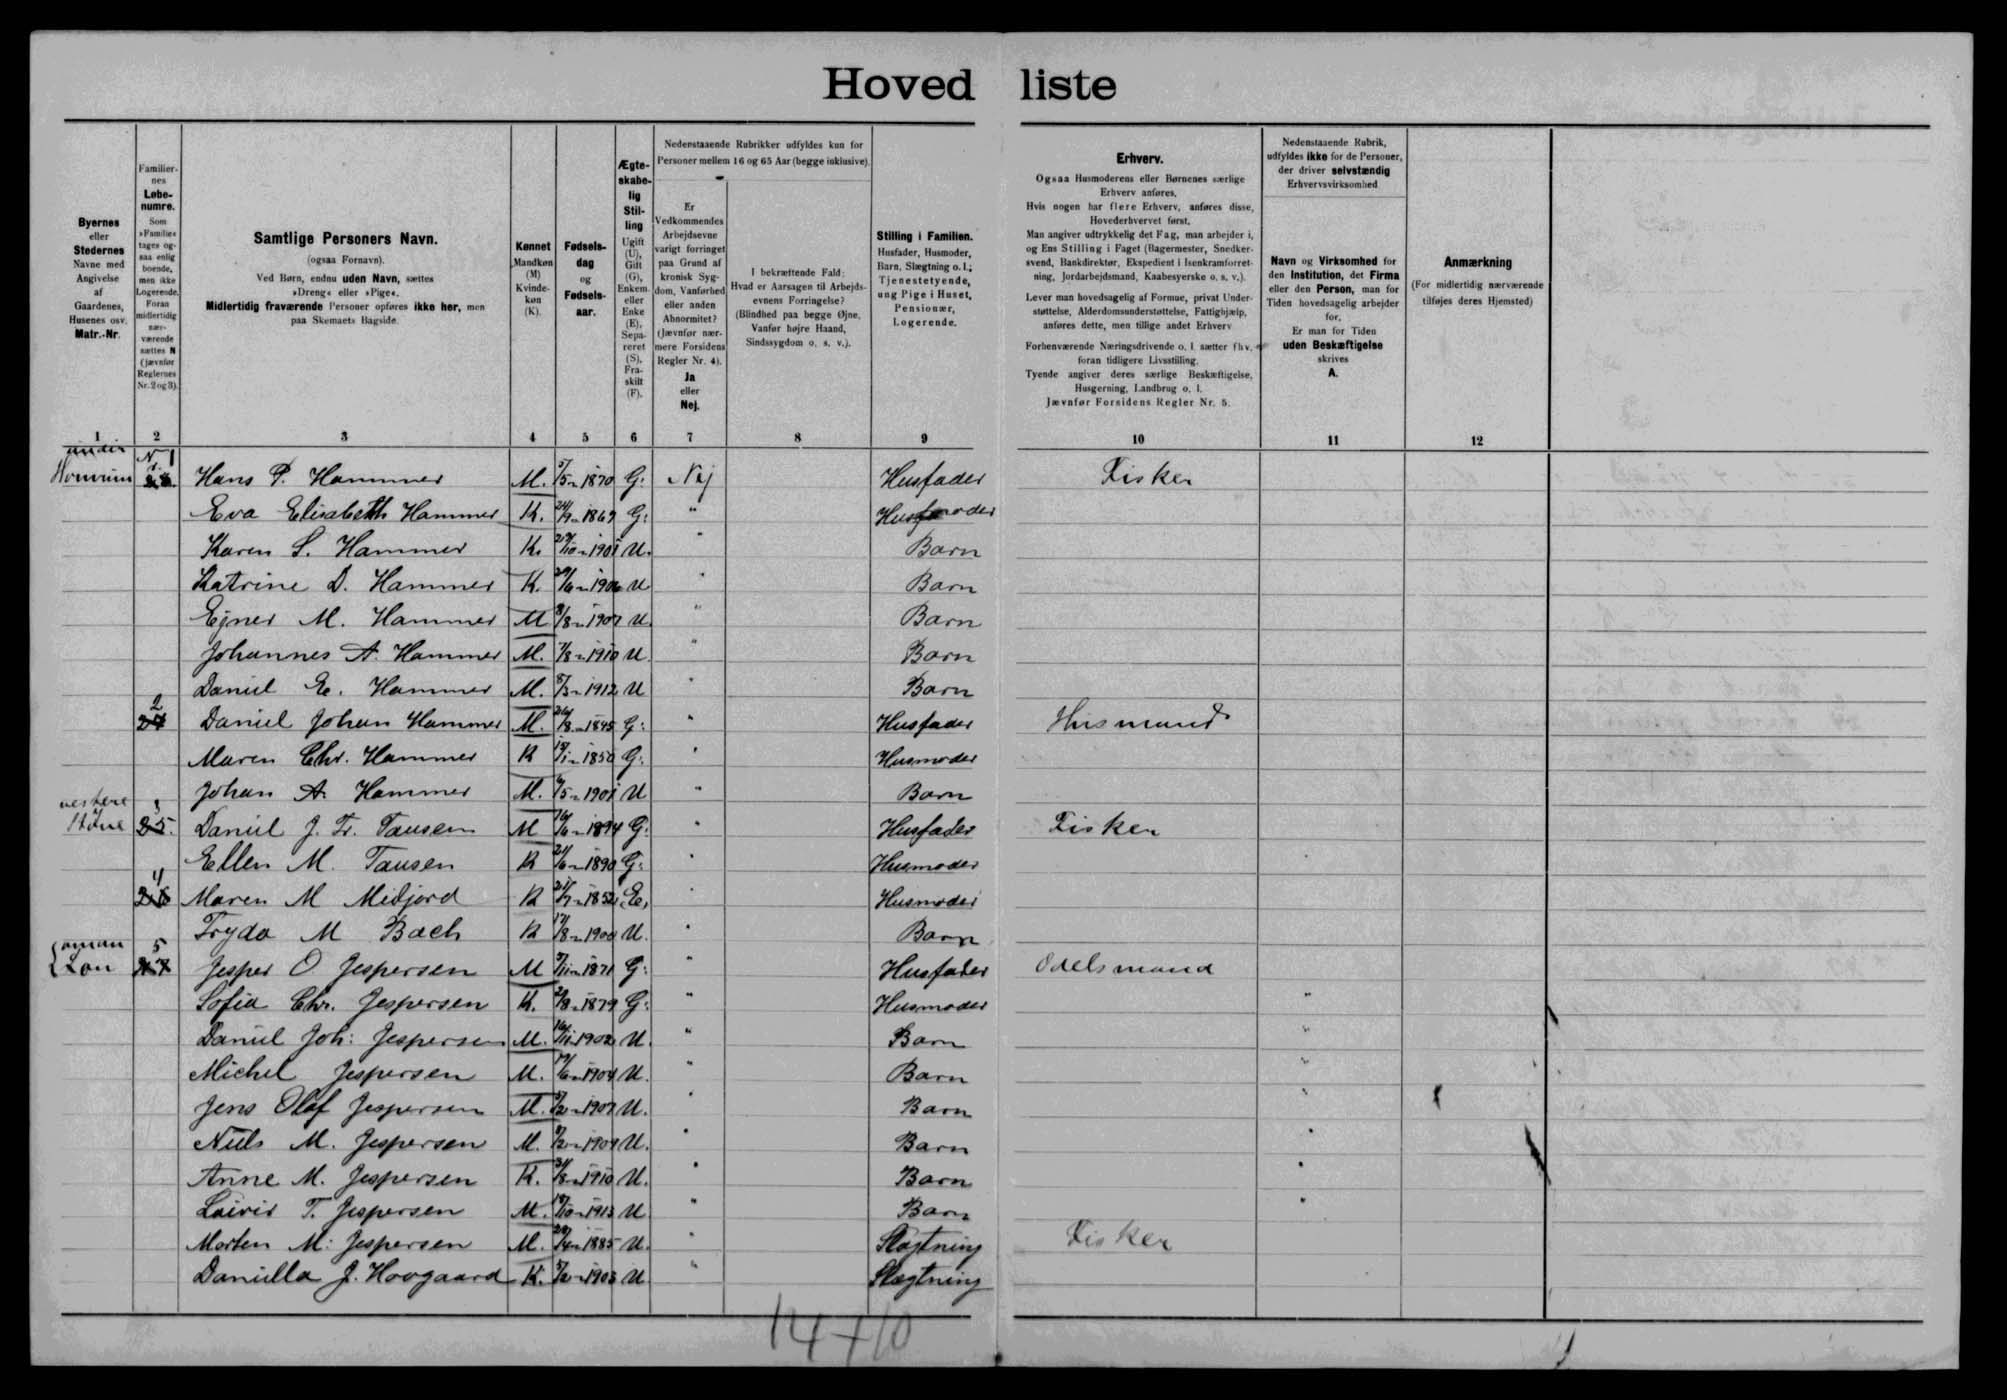 Hovedliste
Byernes eller Stedernes Navne med Angivelse af Gaardenes, Husenes osv. Matr.-Nr.
Familiernes Løbenumre. Som »Familie« tages ogsaa enlig boende, men ikke Logerende. Foran midlertidig nærværende sættes N (jævnfør Reglernes Nr. 2 og 3).
Samtlige Personers Navn.
(ogsaa Fornavn).
Ved Børn, endnu uden Navn, sættes
»Dreng« eller »Pige«.
Midlertidig fraværende Personer opføres ikke her, men
paa Skemaets Bagside.
Kønnet Mandkøn (M) Kvindekøn (K).
Fødselsdag og Fødselsaar.
Ægteskabelig Stilling Ugift (U), Gift (G), Enkem. eller Enke (E), Separeret (S), Fraskilt (F).
Nedenstaaende Rubrikker udfyldes kun for
Personer mellem 16 og 65 Aar (begge inklusive).
Er Vedkommendes Arbejdsevne varigt forringet paa Grund af kronisk Sygdom, Vanførhed eller anden Abnormitet? (Jævnfør nærmere Forsidens Regler Nr. 4). Ja eller Nej.
I bekræftende Fald:
Hvad er Aarsagen til Arbejdsevnens Forringelse?
(Blindhed paa begge Øjne, Vanfør højre Haand, Sindssygdom o. s. v.).
Stilling i Familien.
Husfader, Husmoder, Barn, Slægtning o. l.; Tjenestetyende, ung Pige i Huset, Pensionær, Logerende.
Erhverv.
Ogsaa Husmoderens eller Børnenes særlige
Erhverv anføres.
Hvis nogen har flere Erhverv, anføres disse,
Hovederhvervet først.
Man angiver udtrykkelig det Fag, man arbejder i,
og Ens Stilling i Faget (Bagermester, Snedkersvend, Bankdirektør, Ekspedient i Isenkramforretning, Jordarbejdsmand, Kaabesyerske o. s. v.).
Lever man hovedsagelig af Formue, privat Understøttelse, Alderdomsunderstøttelse, Fattighjælp,
anføres dette, men tillige andet Erhverv
Forhenværende Næringsdrivende o. l. sætter fhv.
foran tidligere Livsstilling.
Tyende angiver deres særlige Beskæftigelse,
Husgerning, Landbrug o. l.
Jævnfør Forsidens Regler Nr. 5.
Nedenstaaende Rubrik,
udfyldes ikke for de Personer,
der driver selvstændig
Erhvervsvirksomhed
Navn og Virksomhed for
den Institution, det Firma
eller den Person, man for
Tiden hovedsagelig arbejder
for.
Er man for Tiden
uden Beskæftigelse
skrives
A.
Anmærkning
(For midlertidig nærværende
tilføjes deres Hjemsted)
1 2 3 4 5 6 7 8 9 10 11 12
under
Hans P. Hammer M. 1870 G. Nej Husfader Fisker
Eva Elisabeth Hammer K. 1869 G: " Husmoder
Karen S. Hammer K. U. " Barn
Katrine D. Hammer K. 1906 U " Barn
Ejner M. Hammer M 8/8 1907 U. " Barn
Johannes A. Hammer M. 7/8 1910 U. " Barn
Daniel E. Hammer M. 1912 U " Barn
2 Daniel Johan Hammer M. 1845 G: " Husfader Husmand
Maren Chr. Hammer K 1850 G: " Husmoder
Johan A. Hammer M. 1901 U " Barn
3 Daniel J. Fr. Tausen M 1894 G. " Husfader Fisker
Ellen M. Tausen K 1890 G: " Husmoder
4 Maren M Midjord K 1852 E. " Husmoder
Fryda M Bach K 1900 U. " Barn
5 Jesper O Jespersen M 1871 G: " Husfader Odelsmand
Sofia Chr. Jespersen K. 1879 G: " Husmoder "
Daniel Joh: Jespersen M. 1902 U. " Barn "
Michel Jespersen M. 1904 U. " Barn "
Jens Olaf Jespersen M. 1907 U. " Barn "
Niels M. Jespersen M. 1909 U. " Barn "
Anne M. Jespersen K. 1910 U. " Barn "
T. Jespersen M. 1913 U " Barn "
Morten M: Jespersen M. 1885 U. " Slægtning Fisker
Daniella J. Hovgaard K. 1903 U " Slægtning
14+10